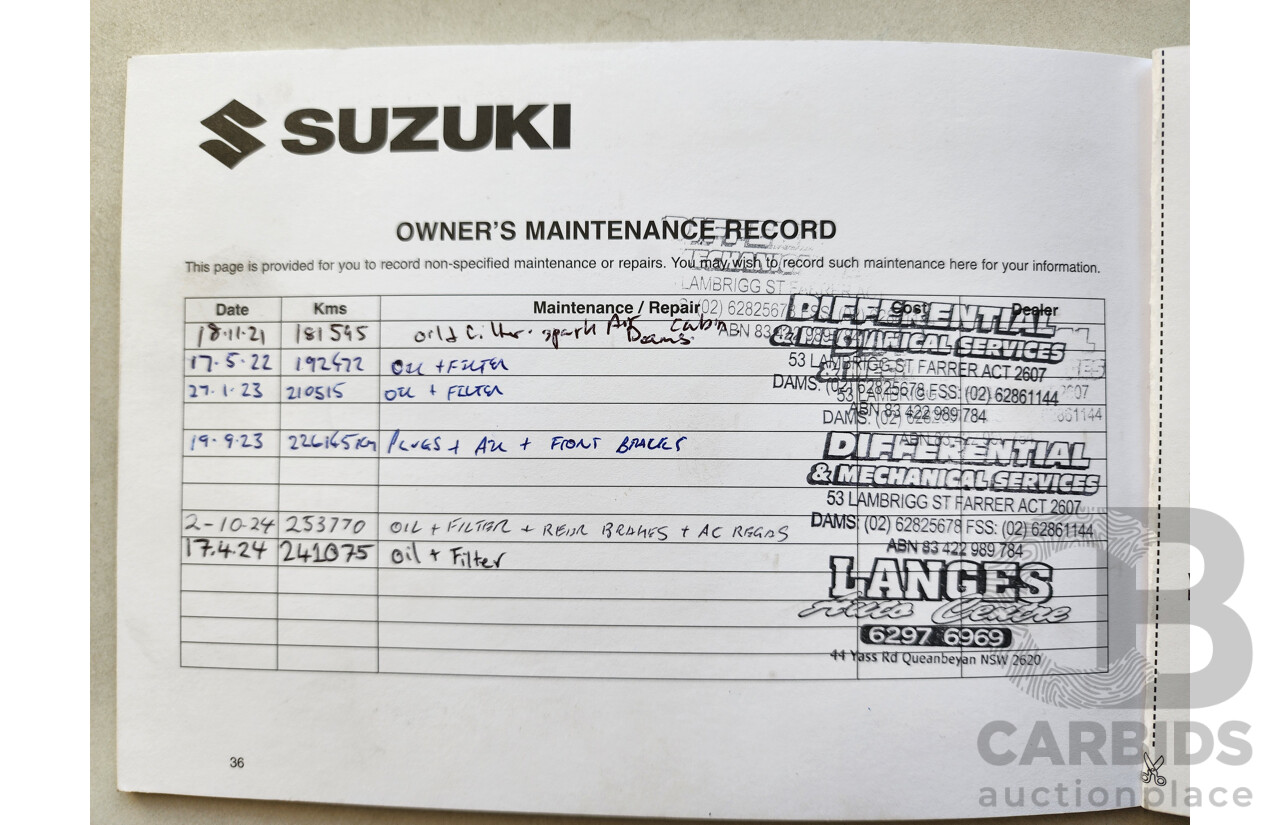 SUZUKI
OWNER'S MAINTENANCE RECORD
This page is provided for you to record non-specified maintenance or repairs. You may wish to record such maintenance here for your information.
LAMBRIGG ST FARRER
Date Kms Maintenance / Repair Cost Dealer
(02) 6282567
18.11.21 181595 spark Cabin
ABN 83
DIFFERENTIAL
& MECHANICAL SERVICES
53 LAMBRIGG ST FARRER ACT 2607
DAMS: (02) 62825678 FSS: (02) 62861144
ABN 83 422 989 784
17.5.22 192472 OIL + FILTER
27.1.23 210515 OIL + FILTER
53 LAMBRIGG
DAMS: (02)
861144
19.9.23 226165km PLUGS + + FRONT BRAKES
DIFFERENTIAL
& MECHANICAL SERVICES
53 LAMBRIGG ST FARRER ACT 2607
DAMS: (02) 62825678 FSS: (02) 62861144
ABN 83 422 989 784
2-10-24 253770 OIL + FILTER + REAR BRAKES + AC REGAS
17.4.24 241075 Oil + Filter
LANGES
Auto Centre
6297 6969
44 Yass Rd Queanbeyan NSW 2620
36
CARBIDS
auctionplace